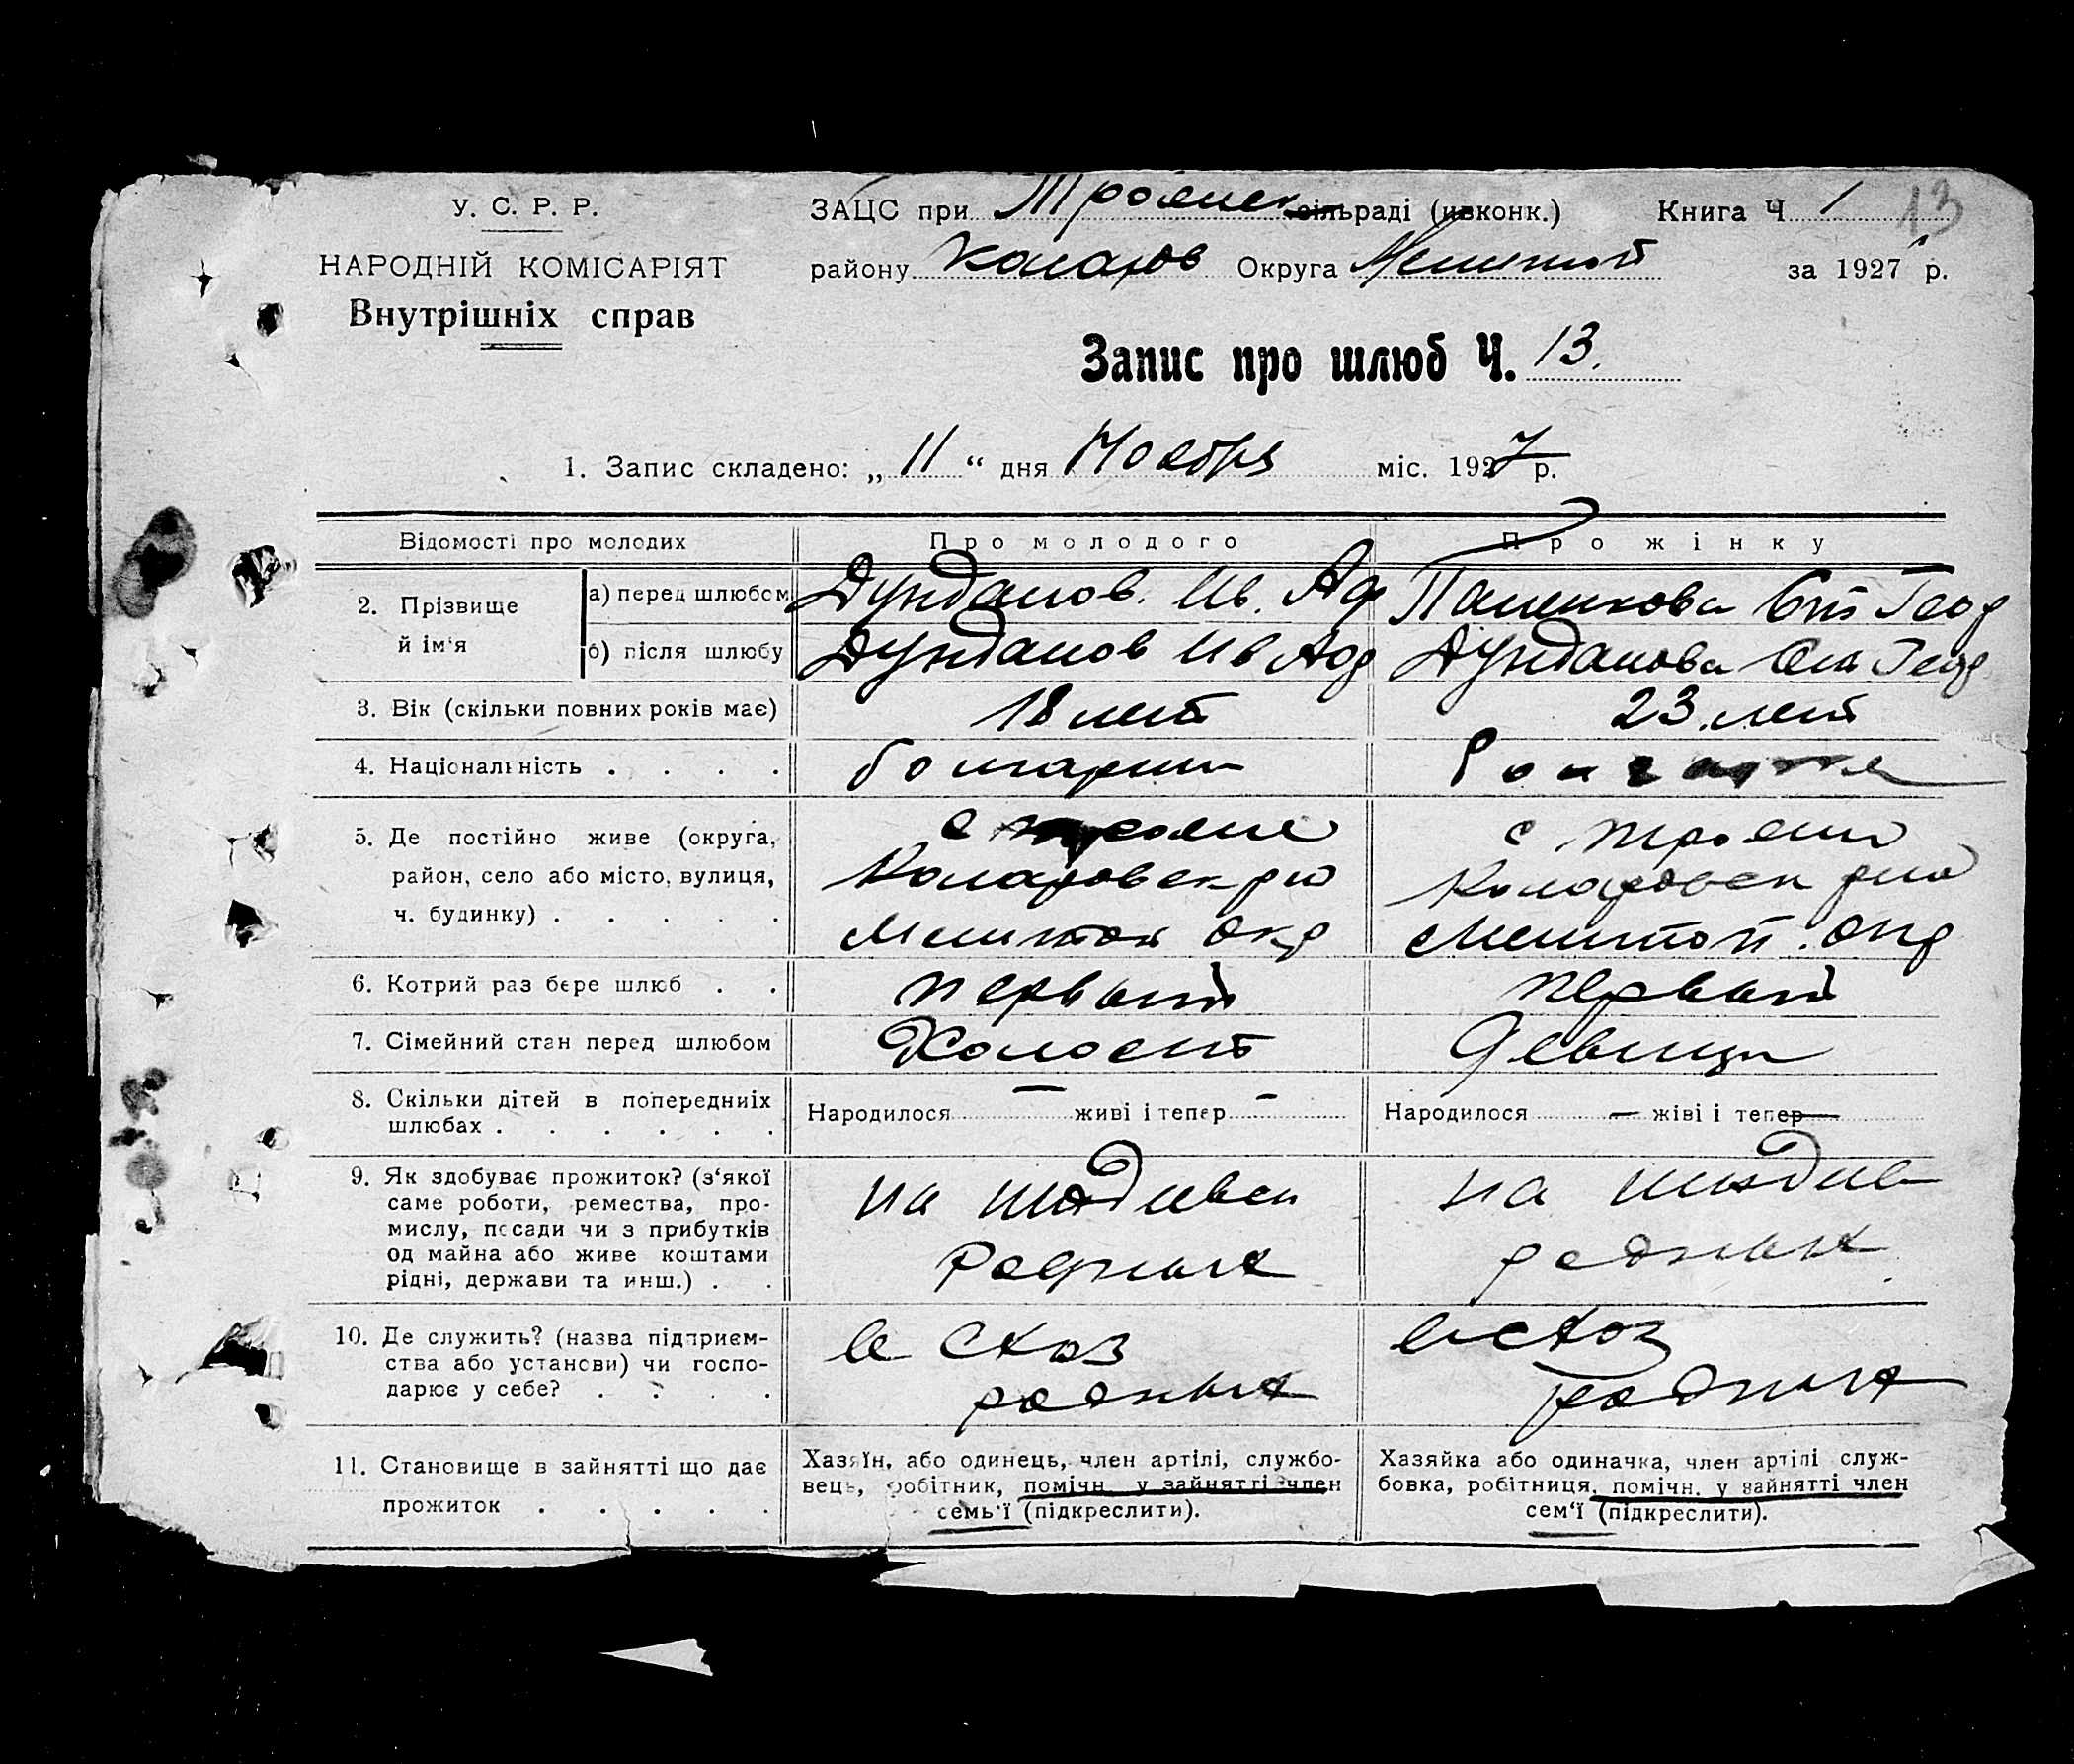 У. С. Р. Р.
НАРОДНІЙ КОМІСАРІЯТ
Внутрішніх справ
ЗАЦС при Троянск сільраді (ивконк.) Книга Ч 1 13
району Коларов Округа Мелитоп за 1927 р.
Запис про шлюб Ч. 13.
1. Запис складено: „ 11 “ дня Ноября міс. 1927 р.
Відомості про молодих Про молодого Про жінку
2. Прізвище й ім‘я
а) перед шлюбом Дунданов. Ив. Паненкова Геор
б) після шлюбу Дунданов Ив Дунданова Геор
3. Вік (скільки повних років має) 18 лет 23 лет
4. Національність . . . . болгарин болгарка
5. Де постійно живе (округа, с Трояны с Трояны
район, село або місто, вулиця, Коларовск р-на Коларовск р-на
ч. будинку) . . . . . Мелитоп Окр Мелитоп. Окр
6. Котрий раз бере шлюб . . первый первый
7. Сімейний стан перед шлюбом Холост Девица
8. Скільки дітей в попередниіх Народилося — живі і тепер — Народилося — жіві і тепер —
шлюбах . . . . . .
9. Як здобуває прожиток? (з‘якої на иждивен на иждив
саме роботи, ремества, про-
мислу, посади чи з прибутків
од майна або живе коштами родных родных
рідні, держави та инш.) . .
10. Де служить? (назва підприєм- в с/хоз в с/хоз
ства або установи) чи госпо-
дарює у себе? . . . . родных родных
11. Становище в зайнятті що дає
прожиток . . . . .
Хазяїн, або одинець, член артілі, службо-
вець, робітник, помічн. у зайнятті член
семь‘ї (підкреслити).
Хазяйка або одиначка, член артілі служ-
бовка, робітниця, помічн. у зайнятті член
сем‘ї (підкреслити).